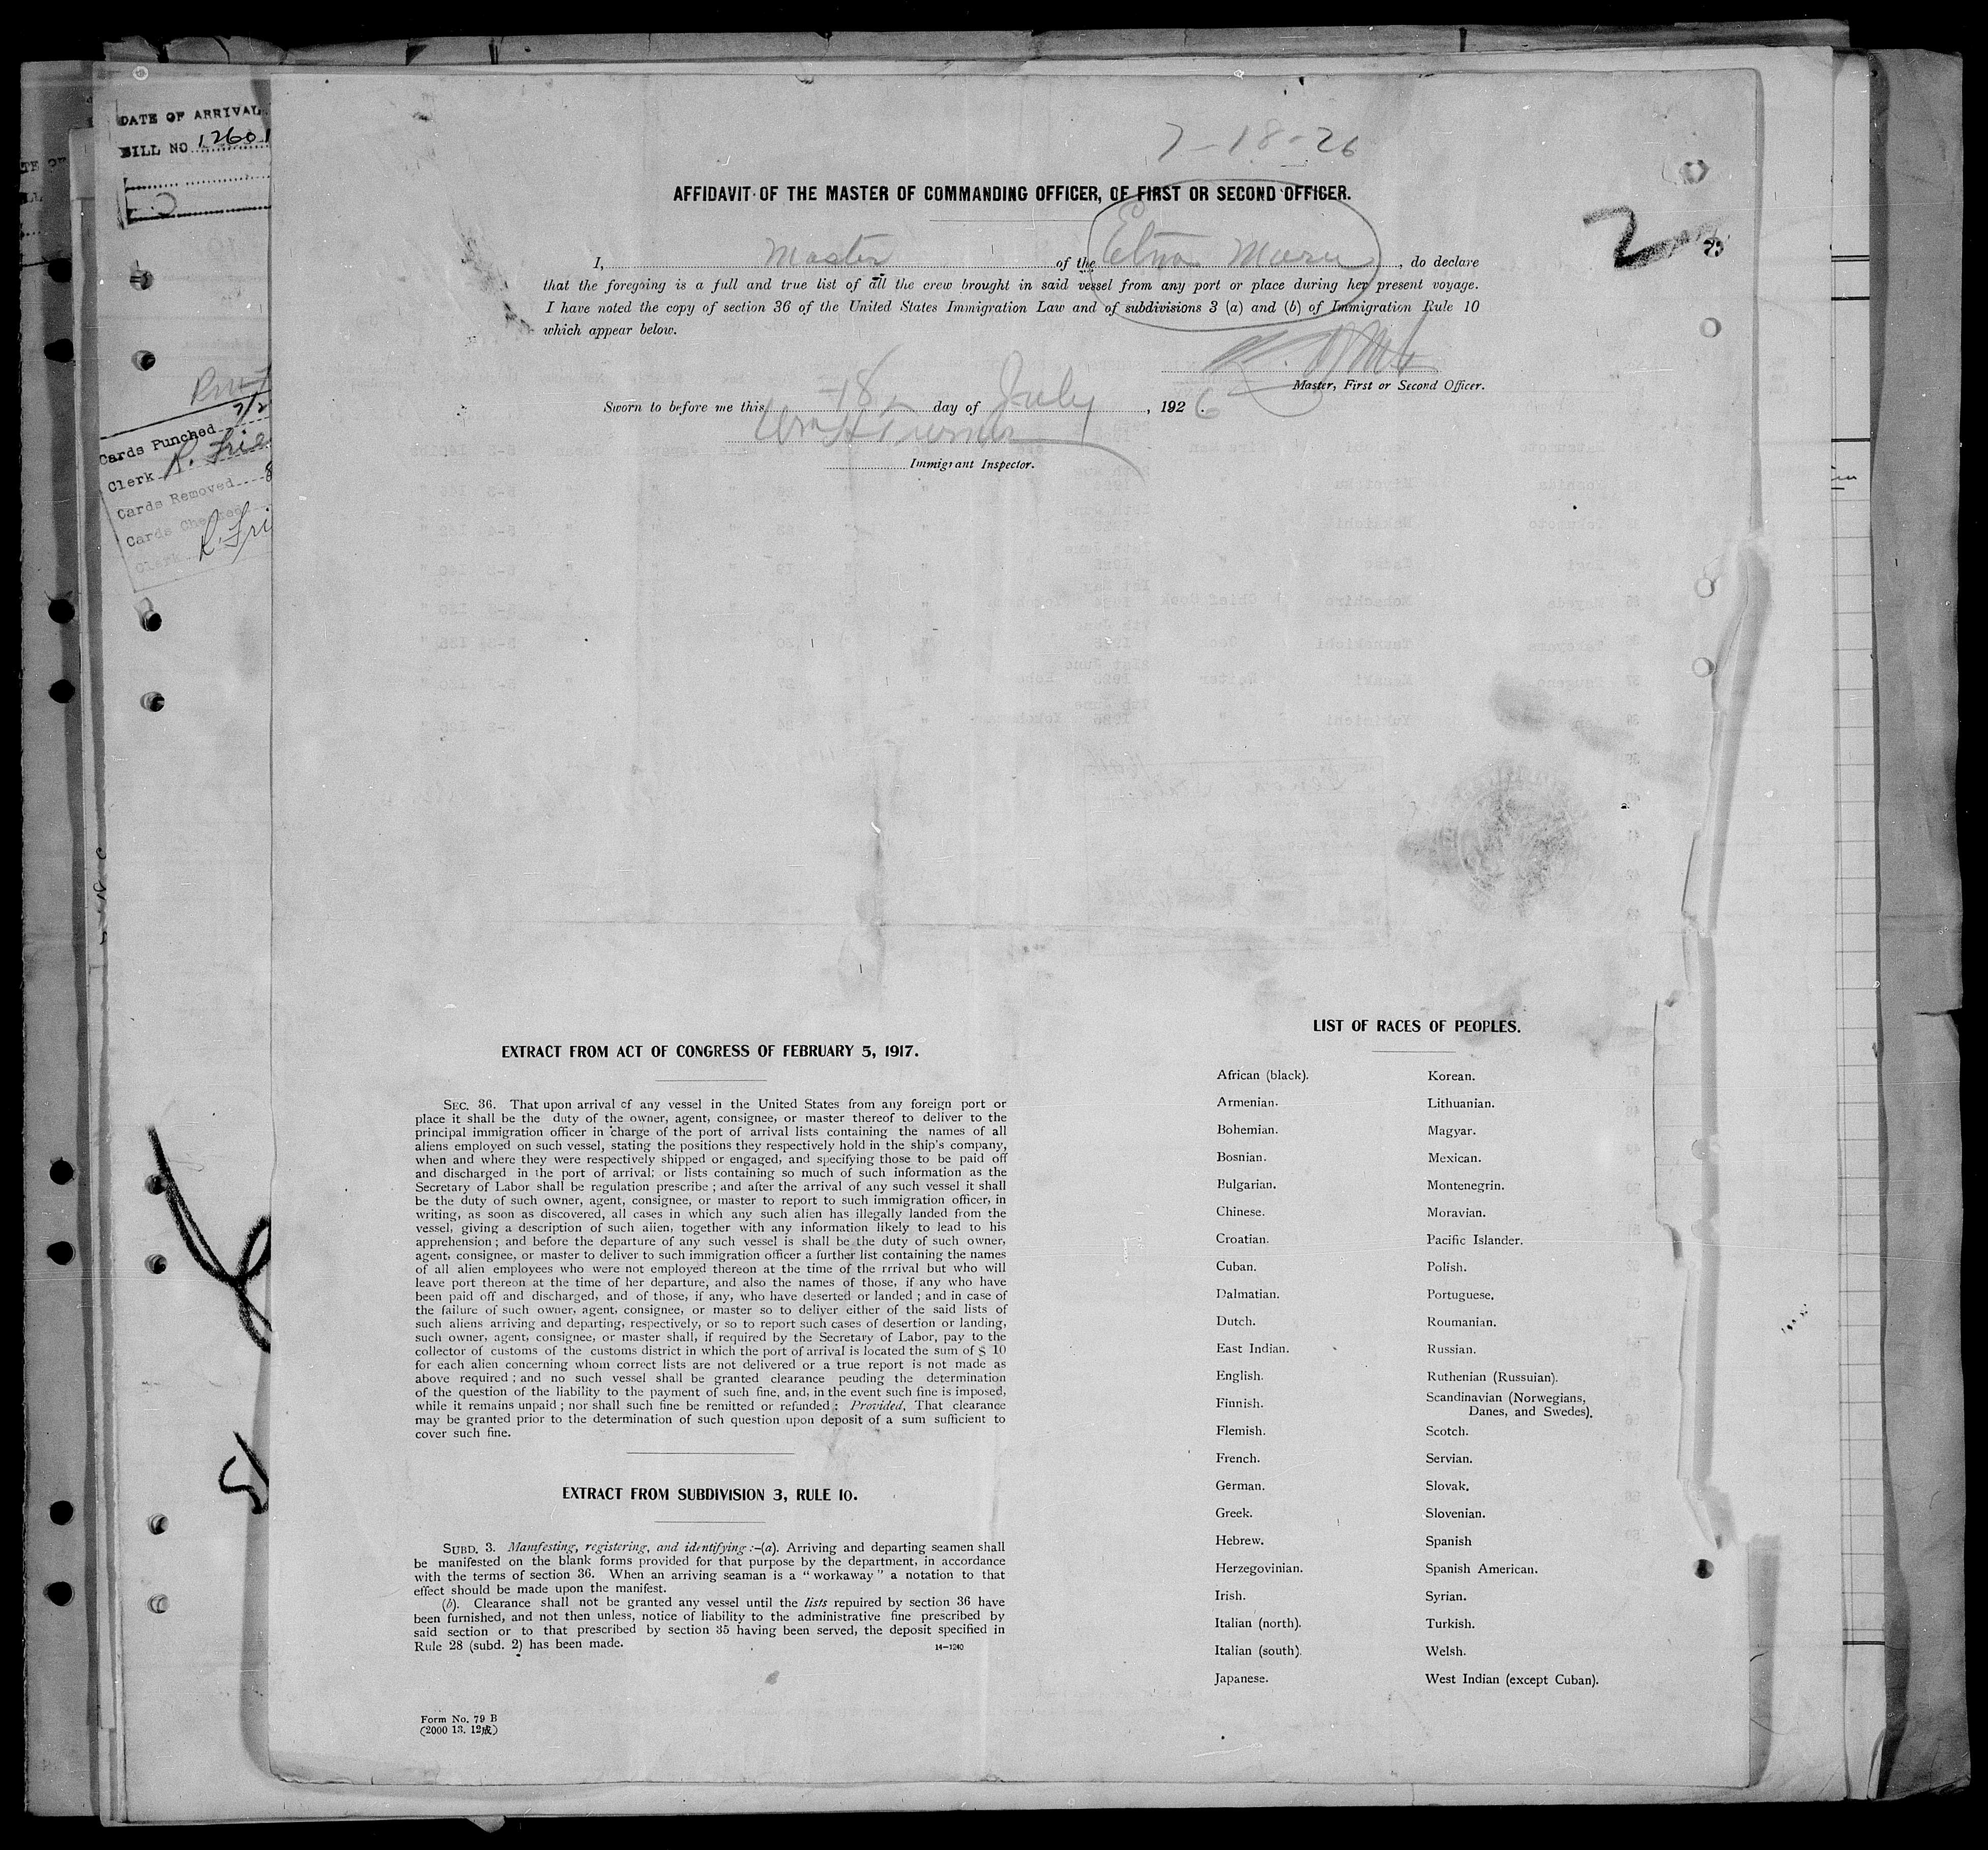 DATE OF ARRIVAL
BILL NO 12601
Cards Punched
Clerk R. Frie
Cards Removed
Cards Checked
Clerk R. Fri
7-18-26
AFFIDAVIT OF THE MASTER OF COMMANDING OFFICER, OF FIRST OR SECOND OFFICER.
2
I, Master of the Etna Maru, do declare
that the foregoing is a full and true list of all the crew brought in said vessel from any port or place during her present voyage.
I have noted the copy of section 36 of the United States Immigration Law and of subdivisions 3 (a) and (b) of Immigration Rule 10
which appear below.
Master, First or Second Officer.
Sworn to before me this 18 day of July, 1926.
Wm H Turner
Immigrant Inspector.
EXTRACT FROM ACT OF CONGRESS OF FEBRUARY 5, 1917.
SEC. 36. That upon arrival of any vessel in the United States from any foreign port or
place it shall be the duty of the owner, agent, consignee, or master thereof to deliver to the
principal immigration officer in charge of the port of arrival lists containing the names of all
aliens employed on such vessel, stating the positions they respectively hold in the ship's company,
when and where they were respectively shipped or engaged, and specifying those to be paid off
and discharged in the port of arrival; or lists containing so much of such information as the
Secretary of Labor shall be regulation prescribe ; and after the arrival of any such vessel it shall
be the duty of such owner, agent, consignee, or master to report to such immigration officer, in
writing, as soon as discovered, all cases in which any such alien has illegally landed from the
vessel, giving a description of such alien, together with any information likely to lead to his
apprehension ; and before the departure of any such vessel is shall be the duty of such owner,
agent, consignee, or master to deliver to such immigration officer a further list containing the names
of all alien employees who were not employed thereon at the time of the rrrival but who will
leave port thereon at the time of her departure, and also the names of those, if any who have
been paid off and discharged, and of those, if any, who have deserted or landed ; and in case of
the failure of such owner, agent, consignee, or master so to deliver either of the said lists of
such aliens arriving and departing, respectively, or so to report such cases of desertion or landing,
such owner, agent, consignee, or master shall, if required by the Secretary of Labor, pay to the
collector of customs of the customs district in which the port of arrival is located the sum of $ 10
for each alien concerning whom correct lists are not delivered or a true report is not made as
above required ; and no such vessel shall be granted clearance peuding the determination
of the question of the liability to the payment of such fine, and, in the event such fine is imposed,
while it remains unpaid ; nor shall such fine be remitted or refunded : Provided, That clearance
may be granted prior to the determination of such question upon deposit of a sum sufficient to
cover such fine.
EXTRACT FROM SUBDIVISION 3, RULE 10.
SUBD. 3. Manifesting, registering, and identifying :-(a). Arriving and departing seamen shall
be manifested on the blank forms provided for that purpose by the department, in accordance
with the terms of section 36. When an arriving seaman is a "workaway" a notation to that
effect should be made upon the manifest.
(b). Clearance shall not be granted any vessel until the lists repuired by section 36 have
been furnished, and not then unless, notice of liability to the administrative fine prescribed by
said section or to that prescribed by section 35 having been served, the deposit specified in
Rule 28 (subd. 2) has been made.
14-1240
Form No. 79 B
(2000 13. 12成)
LIST OF RACES OF PEOPLES.
African (black). Korean.
Armenian. Lithuanian.
Bohemian. Magyar.
Bosnian. Mexican.
Bulgarian. Montenegrin.
Chinese. Moravian.
Croatian. Pacific Islander.
Cuban. Polish.
Dalmatian. Portuguese.
Dutch. Roumanian.
East Indian. Russian.
English. Ruthenian (Russuian).
Finnish. Scandinavian (Norwegians,
Danes, and Swedes).
Flemish. Scotch.
French. Servian.
German. Slovak.
Greek. Slovenian.
Hebrew. Spanish
Herzegovinian. Spanish American.
Irish. Syrian.
Italian (north). Turkish.
Italian (south). Welsh.
Japanese. West Indian (except Cuban).